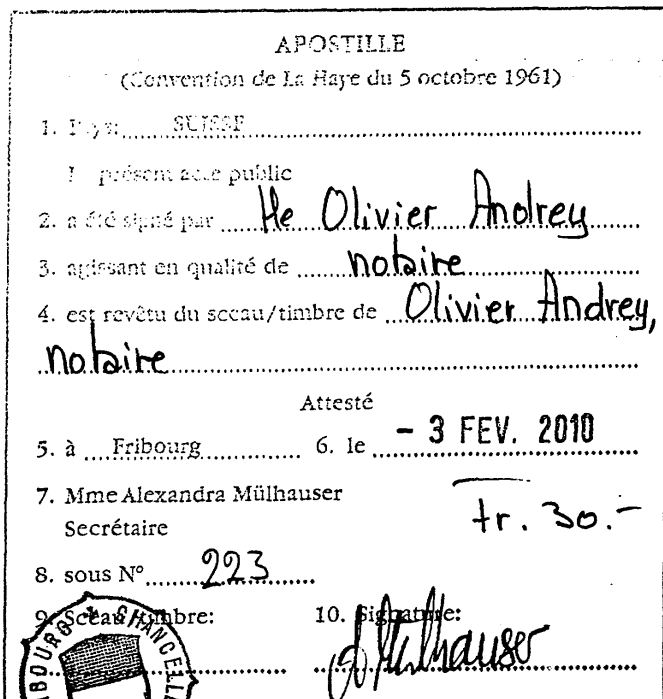 APOSTILLE
(Convention de La Haye du 5 octobre 1961)
1. Pays: SUISSE
présent acte public
2. a été signé par Me Olivier Andrey
3. agissant en qualité de notaire
4. est revêtu du sceau/timbre de Olivier Andrey,
notaire
Attesté
5. à Fribourg 6. le - 3 FEV. 2010
7. Mme Alexandra Mülhauser
Secrétaire
fr. 30.-
8. sous N° 223
9. Sceau/timbre: 10. Signature:
BOURG ✶ CHANCELLA
AMülhauser